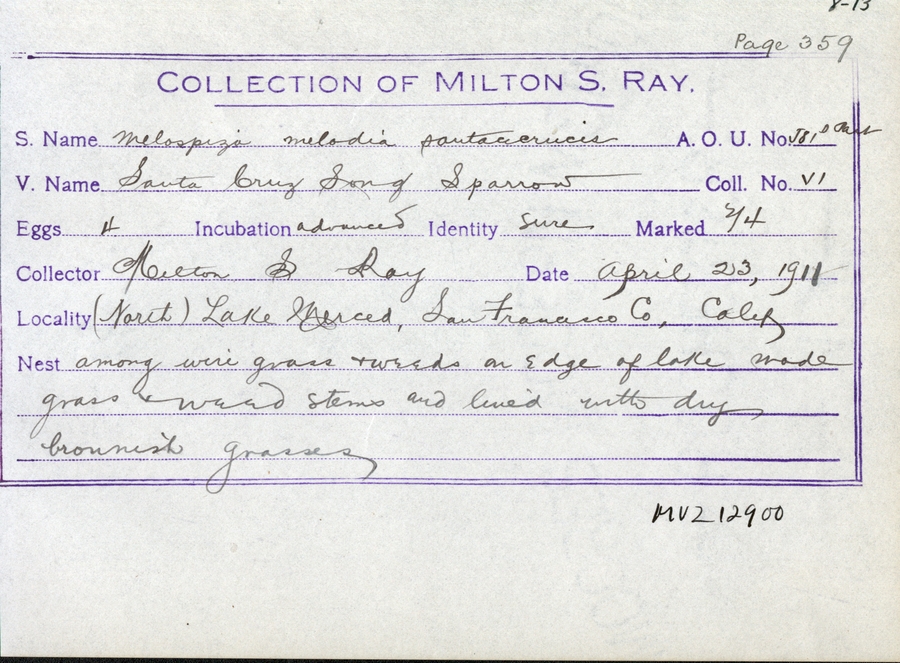 8-13
Page 359
COLLECTION OF MILTON S. RAY.
S. Name Melospiza melodia santaecrucis A. O. U. No. 581
V. Name Santa Cruz Song Sparrow Coll. No. VI
Eggs 4 Incubation advanced Identity sure Marked 2/4
Collector Milton S Ray Date April 23, 1911
Locality (North) Lake Merced, San Francisco Co, Calif
Nest among wire grass & weeds on Edge of lake made
grass & weed stems and lined with dry
brownish grasses
MVZ 12900